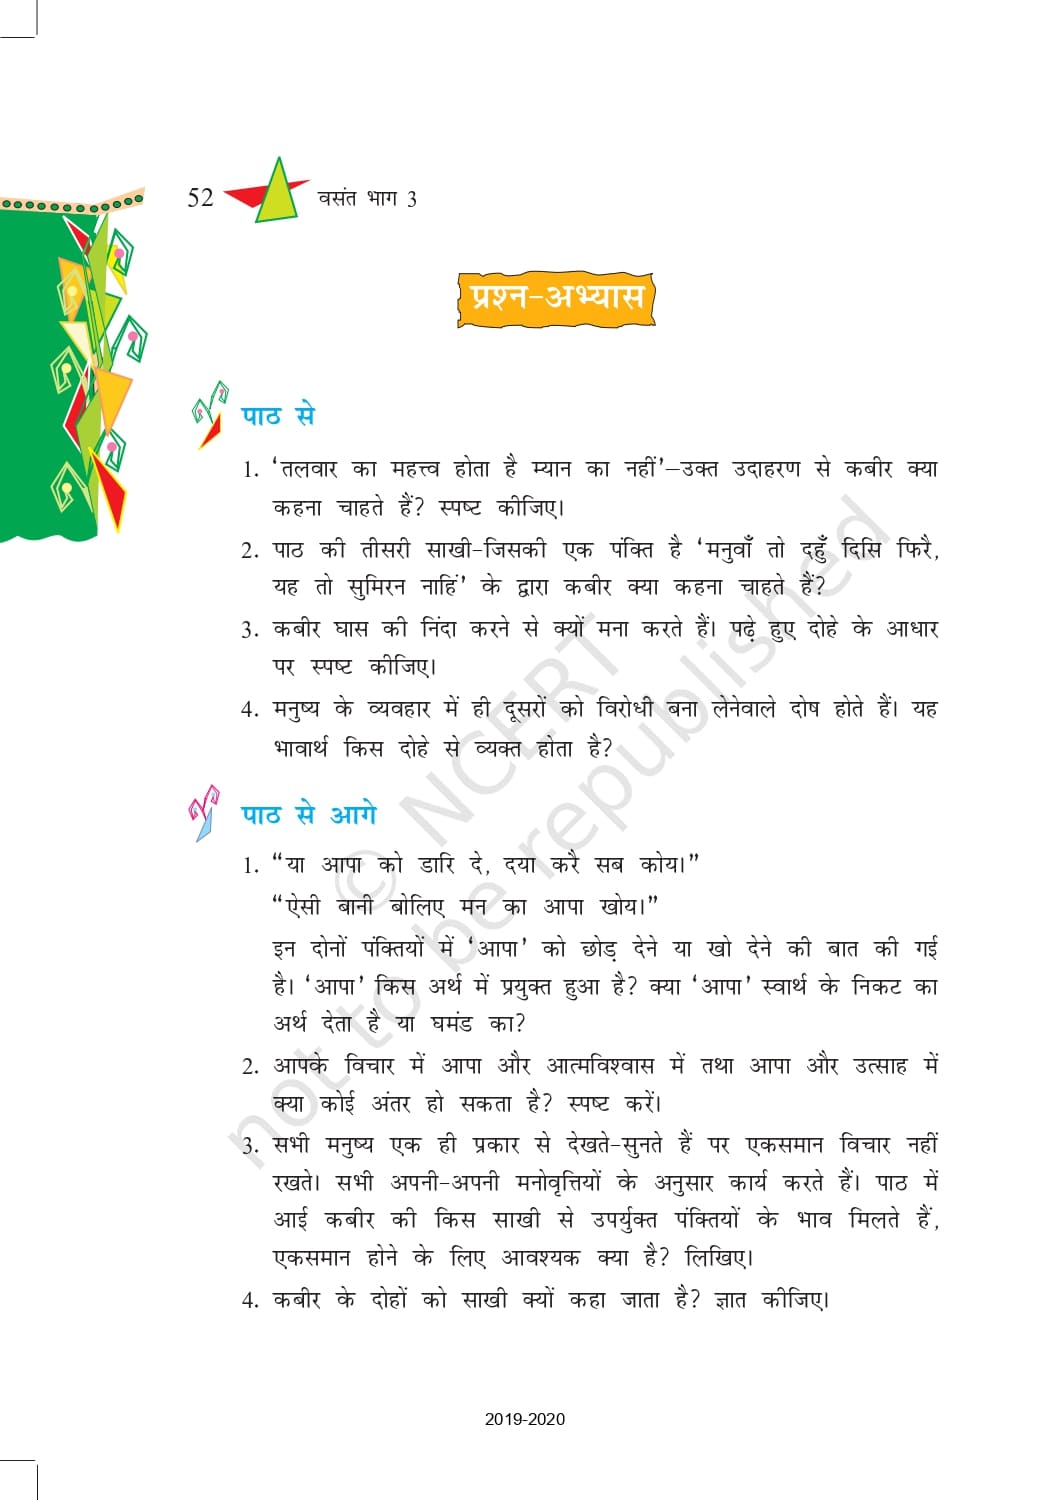 52 वसंत भाग 3
प्रश्न-अभ्यास
पाठ से
1. ‘तलवार का महत्त्व होता है म्यान का नहीं’–उक्त उदाहरण से कबीर क्या
कहना चाहते हैं? स्पष्ट कीजिए।
2. पाठ की तीसरी साखी-जिसकी एक पंक्ति है ‘मनुवाँ तो दहुँ दिसि फिरै,
यह तो सुमिरन नाहिं’ के द्वारा कबीर क्या कहना चाहते हैं?
3. कबीर घास की निंदा करने से क्यों मना करते हैं। पढ़े हुए दोहे के आधार
पर स्पष्ट कीजिए।
4. मनुष्य के व्यवहार में ही दूसरों को विरोधी बना लेनेवाले दोष होते हैं। यह
भावार्थ किस दोहे से व्यक्त होता है?
पाठ से आगे
1. “या आपा को डारि दे, दया करै सब कोय।”
“ऐसी बानी बोलिए मन का आपा खोय।”
इन दोनों पंक्तियों में ‘आपा’ को छोड़ देने या खो देने की बात की गई
है। ‘आपा’ किस अर्थ में प्रयुक्त हुआ है? क्या ‘आपा’ स्वार्थ के निकट का
अर्थ देता है या घमंड का?
2. आपके विचार में आपा और आत्मविश्वास में तथा आपा और उत्साह में
क्या कोई अंतर हो सकता है? स्पष्ट करें।
3. सभी मनुष्य एक ही प्रकार से देखते-सुनते हैं पर एकसमान विचार नहीं
रखते। सभी अपनी-अपनी मनोवृत्तियों के अनुसार कार्य करते हैं। पाठ में
आई कबीर की किस साखी से उपर्युक्त पंक्तियों के भाव मिलते हैं,
एकसमान होने के लिए आवश्यक क्या है? लिखिए।
4. कबीर के दोहों को साखी क्यों कहा जाता है? ज्ञात कीजिए।
© NCERT
not to be republished
2019-2020